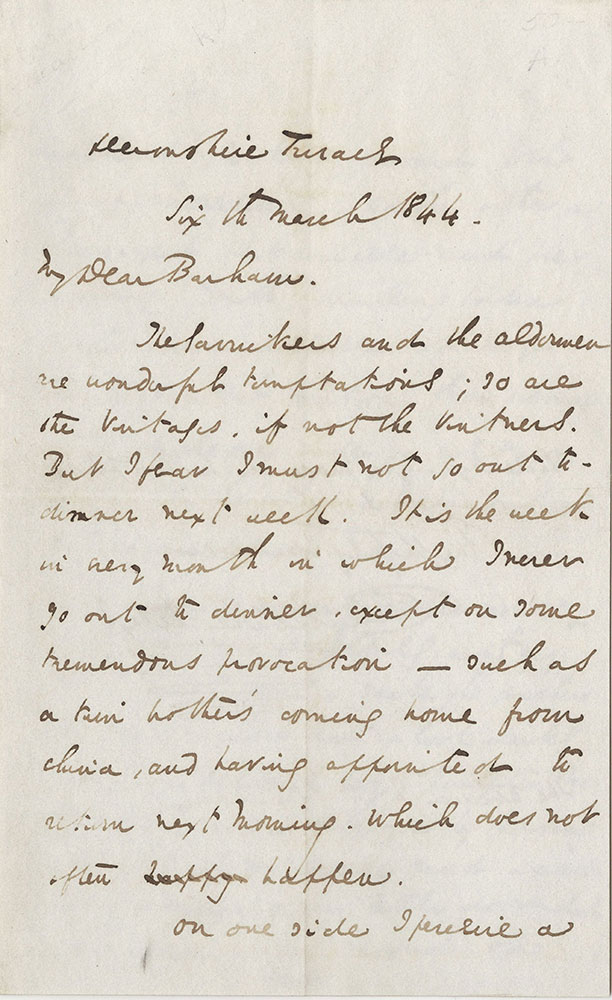 Devonshire Terrace
Sixth March 1844.
My Dear Barham.
The and the aldermen
are wonderful temptations; so are
the Vintages, if not the Vintners.
But I fear I must not go out to
dinner next week. It is the week
in every month in which I never
go out to dinner, except on some
tremendous provocation — such as
a twin brother's coming home from
China, and having appointed to
return next morning. Which does not
often happen.
On one side I perceive a